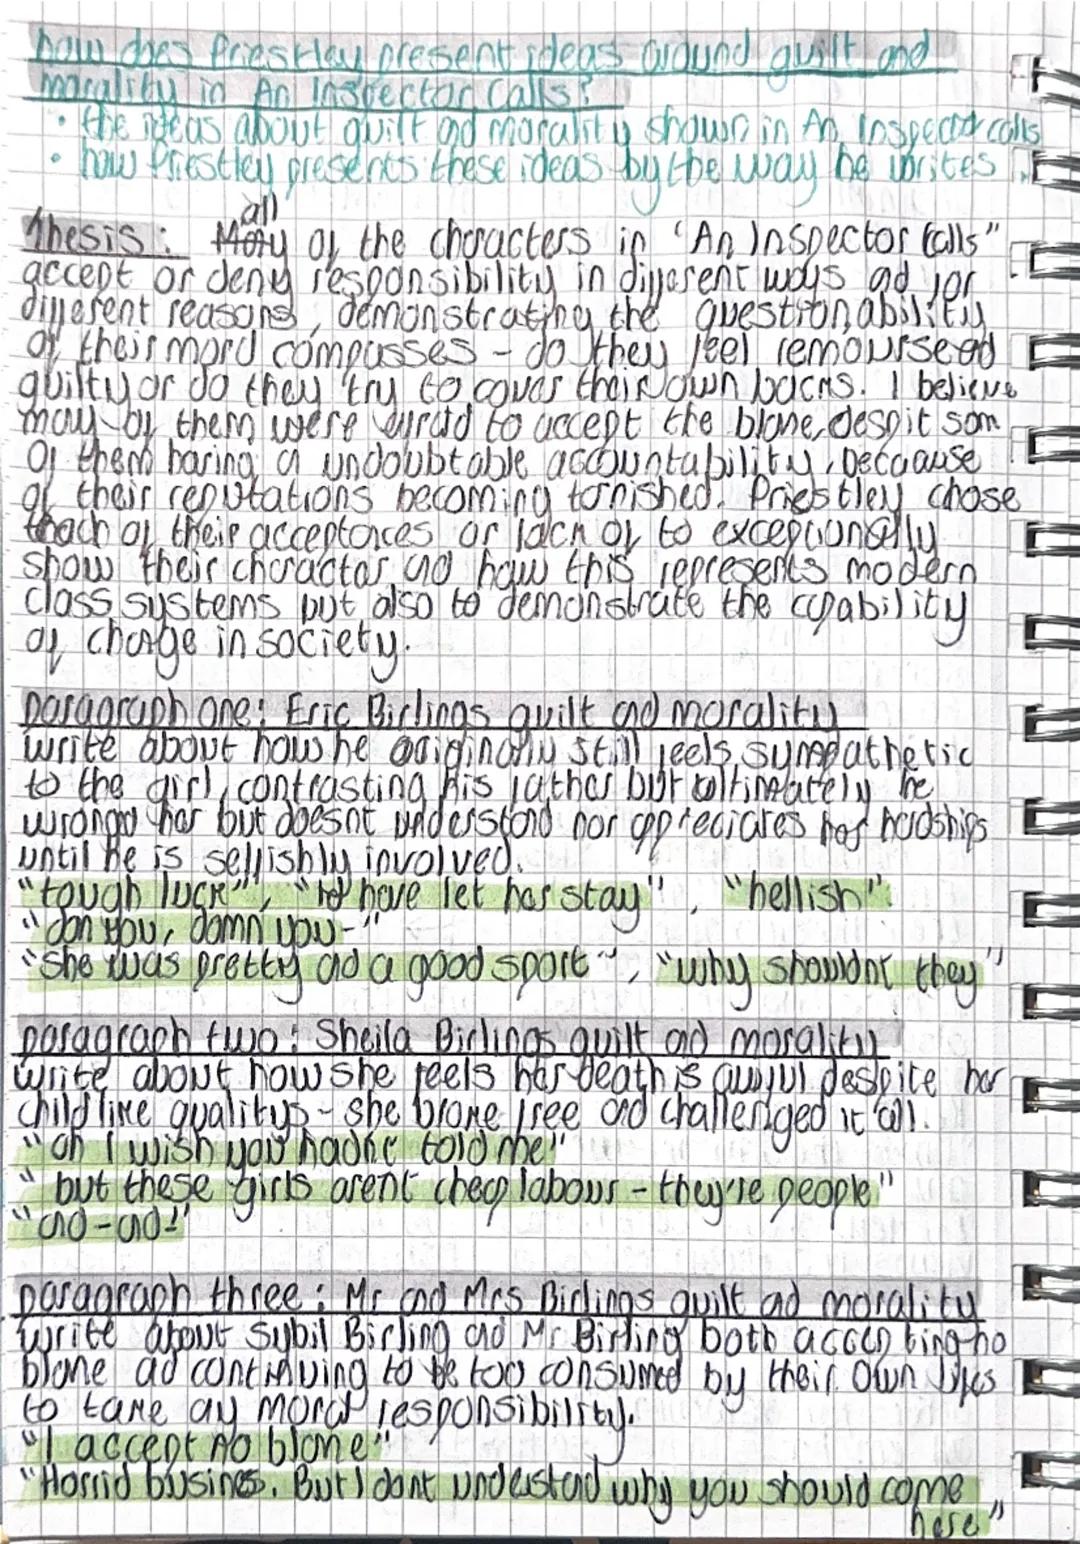 how does Priestley present ideas around guilt and
morality in An Inspector Calls?
• the ideas about guilt ad morality shown in An Inspector calls
• how Priestley presents these ideas by the way he writes.
all
Thesis: Many of the characters in "An Inspector Calls"
accept or deny responsibility in different ways ad for
different reasons, demonstrating the questionability
of their moral compasses - do they feel remourse ad
guilty or do they try to cover their own backs. I believe
many of them were afraid to accept the blame, despit som
of them having a undoubtable accountability, because
of their reputations becoming tarnished. Priestley chose
each of their acceptances or lack of to exceptionally
show their character ad how this represents modern
class systems but also to demonstrate the capability
of change in society.
paragraph one: Eric Birlings guilt ad morality
write about how he originally still feels sympathetic
to the girl, contrasting his father but ultimately he
wronged her but doesnt understand nor appreciates her hardships
until he is selfishly involved.
"tough luck", "I'd have let her stay", "hellish"
"dan you, damn you-"
"she was pretty ad a good sport", "why shouldnt they"
paragraph two: Sheila Birlings guilt ad morality
write about how she feels her death is awful despite her
childlike qualitys - she broke free ad challenged it all.
"oh I wish you hadnt told me"
"but these girls arent cheap labour - they're people"
"ad - ad -"
paragraph three: Mr and Mrs Birlings guilt ad morality
write about Sybil Birling ad Mr Birling both accepting no
blame ad continuing to be too consumed by their own lifes
to take ay moral responsibility.
"I accept no blame"
"Horrid business. But I dont understand why you should come
here"